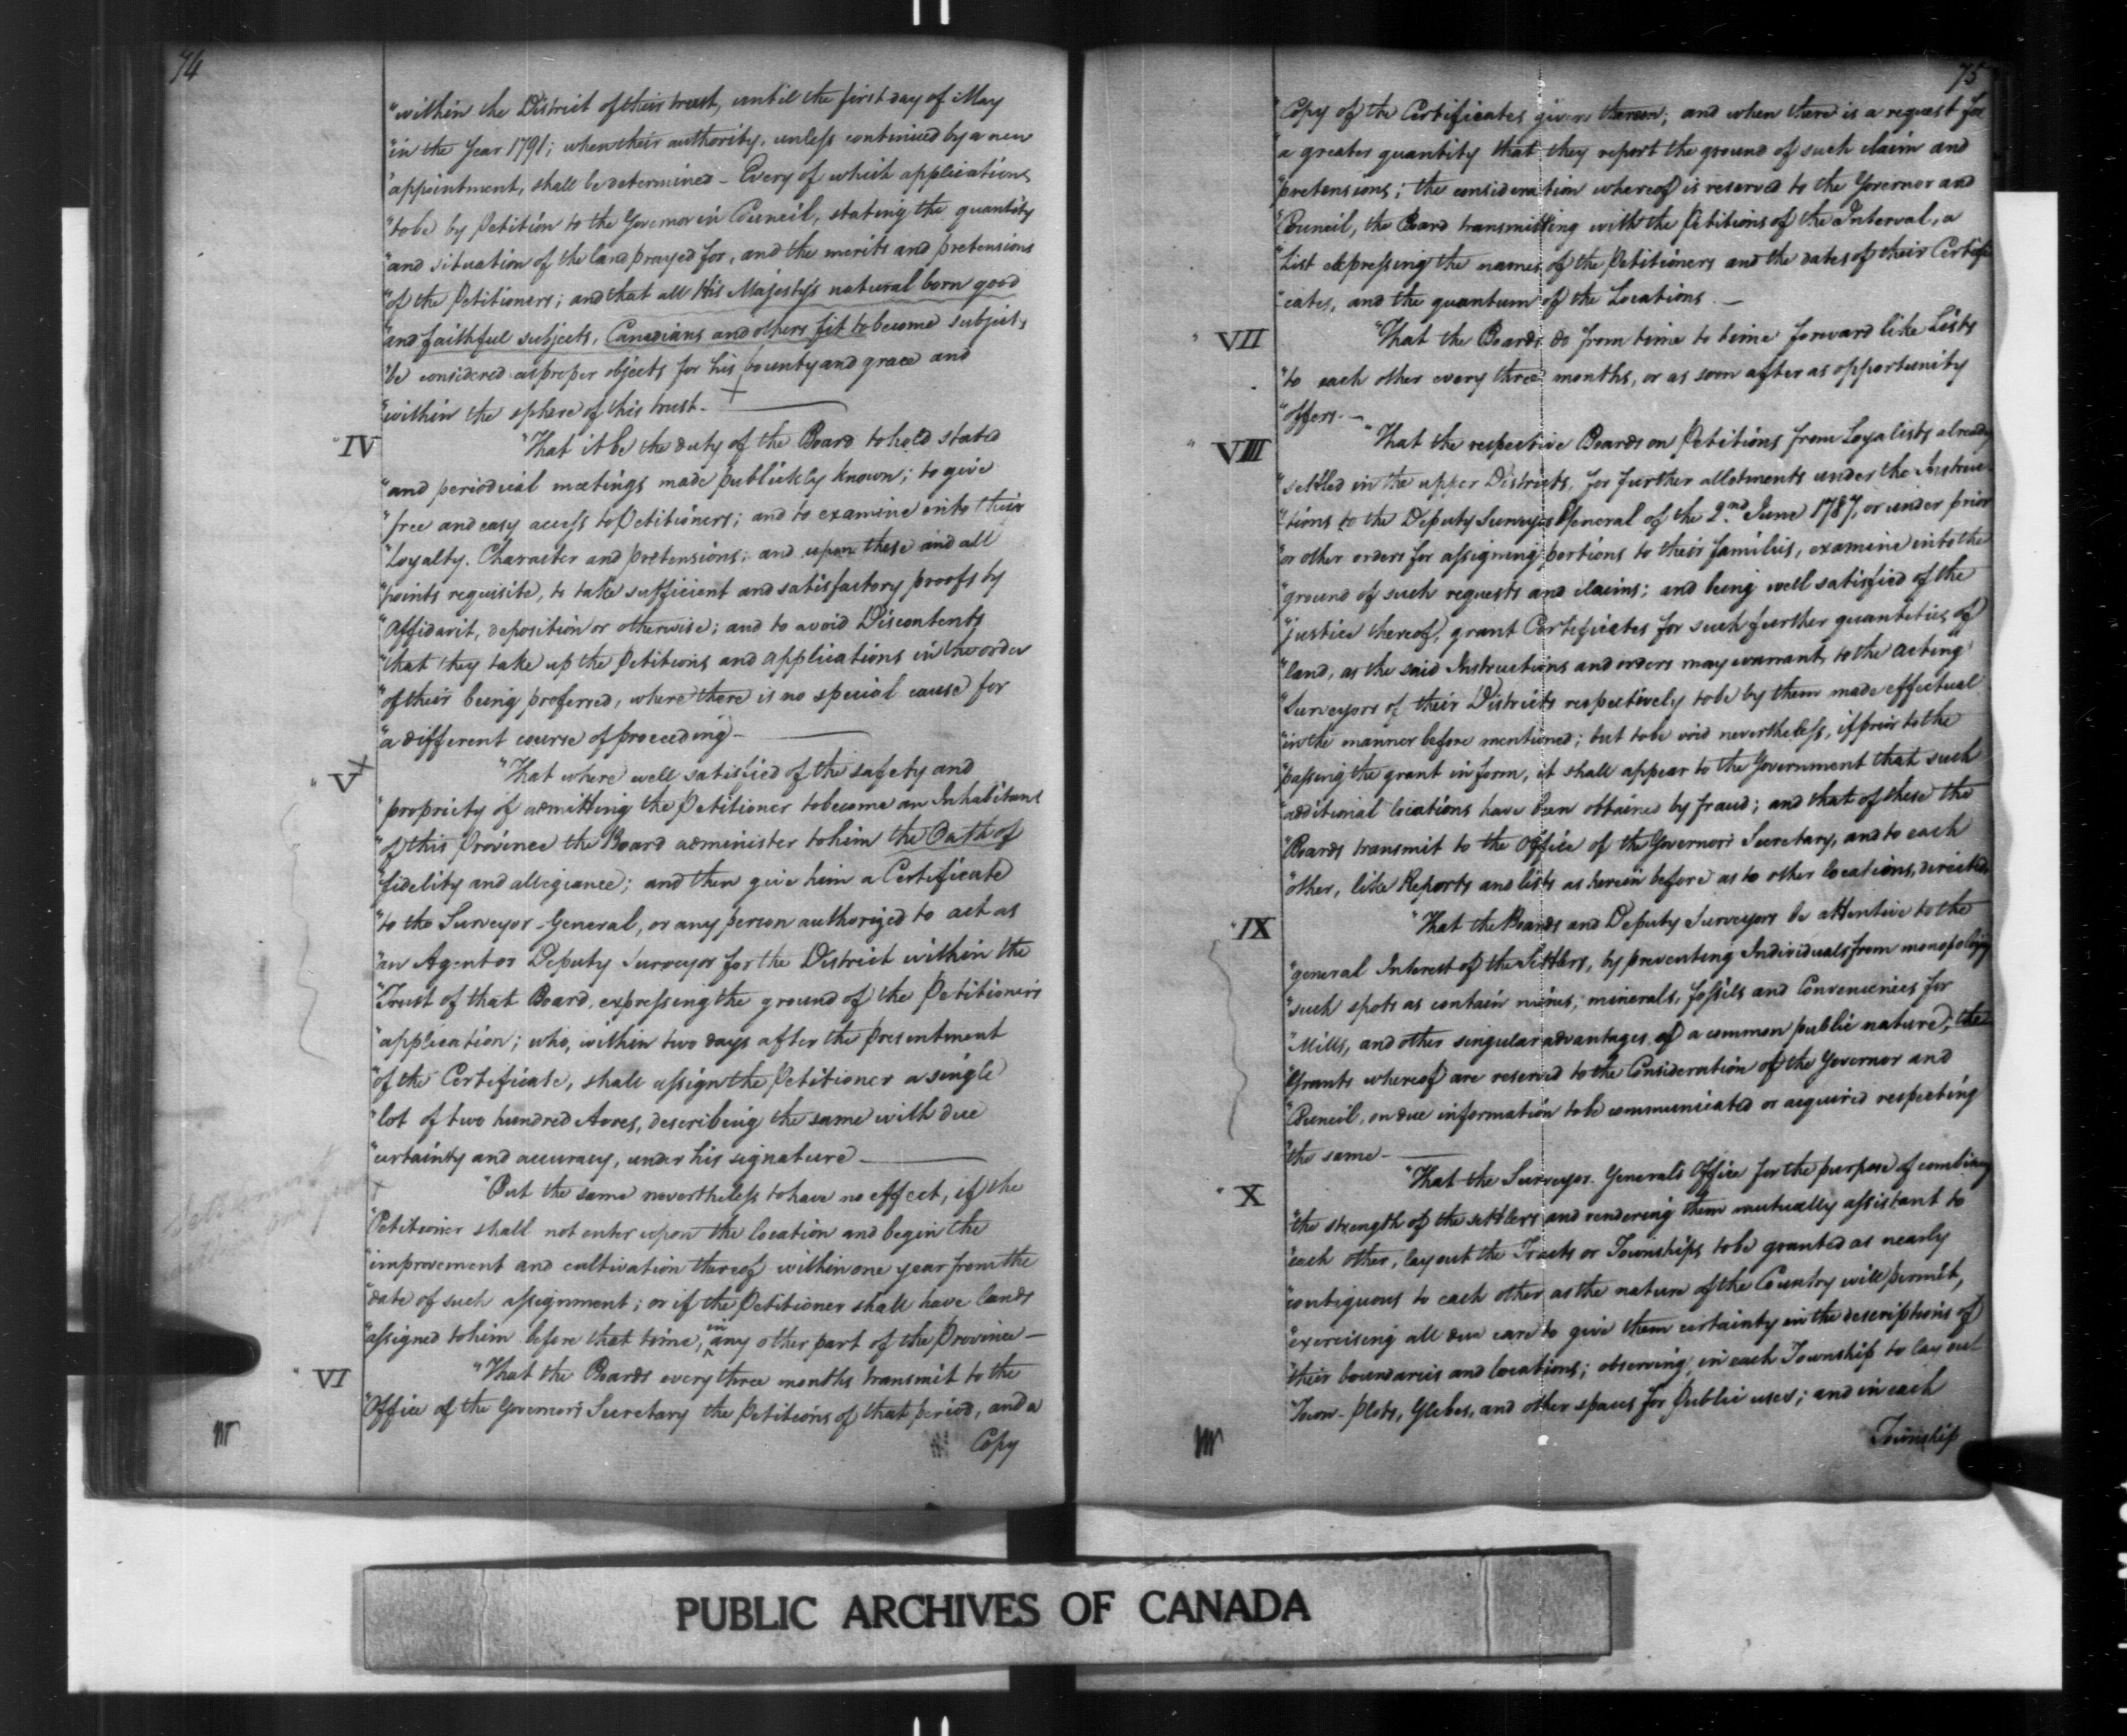 74
"within the District of their trust, until the first day of May
"in the Year 1791; when their authority, unless continued by a new
"appointment, shall be determined – Every of which applications
"to be by Petition to the Governor in Council, stating the quantity
"and situation of the land prayed for, and the merits and pretensions
"of the Petitioners; and that all His Majesty's natural born good
"and faithful subjects, Canadians and others fit to become subjects
"be considered as proper objects for his bounty and grace and
"within the sphere of this trust.
"IV
"That it be the duty of the Board to hold stated
"and periodical meetings made publickly known; to give
"free and easy access to Petitioners; and to examine into their
"Loyalty. Character and pretensions; and upon these and all
"points requisite, to take sufficient and satisfactory proofs by
"Affidavit, deposition or otherwise; and to avoid Discontents
"that they take up the Petitions and applications in the order
"of their being preferred, where there is no special cause for
"a different course of proceeding –
"V
"That where well satisfied of the safety and
"propriety of admitting the Petitioner to become an Inhabitant
"of this Province the Board administer to him the Oath of
"fidelity and allegiance; and then give him a Certificate
"to the Surveyor-General, or any person authorized to act as
"an Agent or Deputy Surveyor for the District within the
"Trust of that Board, expressing the ground of the Petitioner's
"application; who, within two days after the presentment
"of the Certificate, shall assign the Petitioner a single
"lot of two hundred Acres, describing the same with due
"certainty and accuracy, under his signature –
"But the same nevertheless to have no effect, if the
"Petitioner shall not enter upon the location and begin the
"improvement and cultivation thereof within one year from the
"date of such assignment; or if the Petitioner shall have lands
"assigned to him before that time, in any other part of the Province –
"VI
"That the Boards every three months transmit to the
"Office of the Governor's Secretary the Petitions of that period, and a
Copy
75
"Copy of the Certificates given thereon; and when there is a request for
"a greater quantity that they report the ground of such claim and
"pretensions; the consideration whereof is reserved to the Governor and
"Council, the Board transmitting with the Petitions of the Interval, a
"List expressing the names of the Petitioners and the dates of their Certifi
"cates, and the quantum of the Locations. –
"VII
"That the Boards do from time to time forward like Lists
"to each other every three months, or as soon after as opportunity
"offers. –
"VIII
"That the respective Boards on Petitions from Loyalists already
"settled in the upper Districts, for further allotments under the Instruc-
"tions to the Deputy Surveyor General of the 2nd June 1787, or under prior
"or other orders for assigning portions to their families, examine into the
"ground of such requests and claims; and being well satisfied of the
"justice thereof, grant Certificates for such further quantities of
"land, as the said Instructions and orders may warrant to the acting
"Surveyors of their Districts respectively to be by them made effectual
"in the manner before mentioned; but to be void nevertheless, if prior to the
"passing the grant in form, it shall appear to the Government that such
"additional locations have been obtained by fraud; and that of these the
"Boards transmit to the Office of the Governor's Secretary, and to each
"other, like Reports and lists as herein before as to other locations, directed.
"IX
"That the Boards and Deputy Surveyors be attentive to the
"general Interest of the Settlers, by preventing Individuals from monopolizing
"such spots as contain mines, minerals, fossils and Conveniencies for
"Mills, and other singular advantages of a common public nature, the
"Grants whereof are reserved to the Consideration of the Governor and
"Council, on due information to be communicated or acquired respecting
"the same –
"X
"That the Surveyor. General's Office for the purpose of combining
"the strength of the settlers and rendering them mutually assistant to
"each other, lay out the Tracts or Townships to be granted as nearly
"contiguous to each other as the nature of the Country will permit,
"exercising all due care to give them certainty in the descriptions of
"their boundaries and locations; observing in each Township to lay out
"Town-Plots, Glebes, and other spaces for Public uses; and in each
Township
PUBLIC ARCHIVES OF CANADA